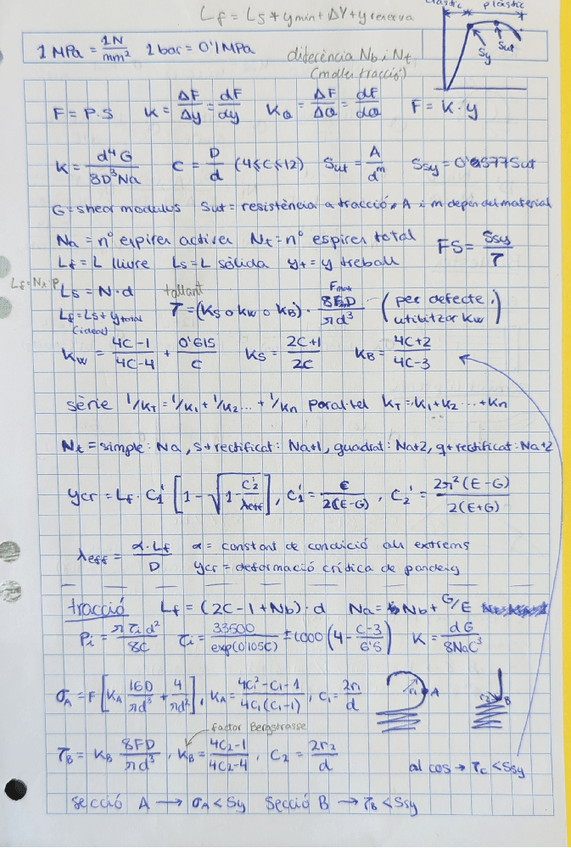 Lf = Ls + ymin + ΔY + yreserva
elàstic plàstic
Sy Sut
1 MPa = 1N/mm² 1 bar = 0'1 MPa
diferència Nb i Nt
(molles tracció)
F = P·S K = ΔF/Δy = dF/dy Kθ = ΔF/Δθ = dF/dθ F = K·y
K = d⁴G/8D³Na C = D/d (4≤C≤12) Sut = A/d^m Ssy = 0'577Sut
G = shear modulus Sut = resistència a tracció, A i m depèn del material
Na = nº espires actives Nt = nº espires total FS = Ssy/τ
Lf = L lliure Ls = L sòlida yt = y treball
Ls = N·d
tallant
Lf = Ls + ytotal
τ = (Ks o Kw o KB) · 8FD/πd³ (per defecte, utilitzar Kw)
Kw = 4C-1/4C-4 + 0'615/C Ks = 2C+1/2C KB = 4C+2/4C-3
sèrie 1/KT = 1/K1 + 1/K2 ... + 1/Kn paral·lel KT = K1 + K2 ... + Kn
Nt = simple: Na, s+rectificat: Na+1, quadrat: Na+2, q+rectificat: Na+2
ycr = Lf · C1' [1 - √(1 - C2'/λeff)], C1' = E/2(E-G), C2' = 2π²(E-G)/2(E+G)
λeff = α·Lf/D α = constant de condició als extrems
ycr = deformació crítica de pandeig
tracció Lf = (2C-1+Nb)·d Na = Nb + G/E
Pi = πτid²/8C τi = 33500/exp(0'105C) ± 1000 (4 - C-3/6'5) K = dG/8NaC³
σA = F [KA 16D/πd³ + 4/πd²], KA = 4C1²-C1-1/4C1(C1-1), C1 = 2r1/d
r1 A
r2 B
factor Bergstrasse
τB = KB 8FD/πd³, KB = 4C2-1/4C2-4, C2 = 2r2/d
al cos → τc < Ssy
secció A → σA < Sy secció B → τB < Ssy